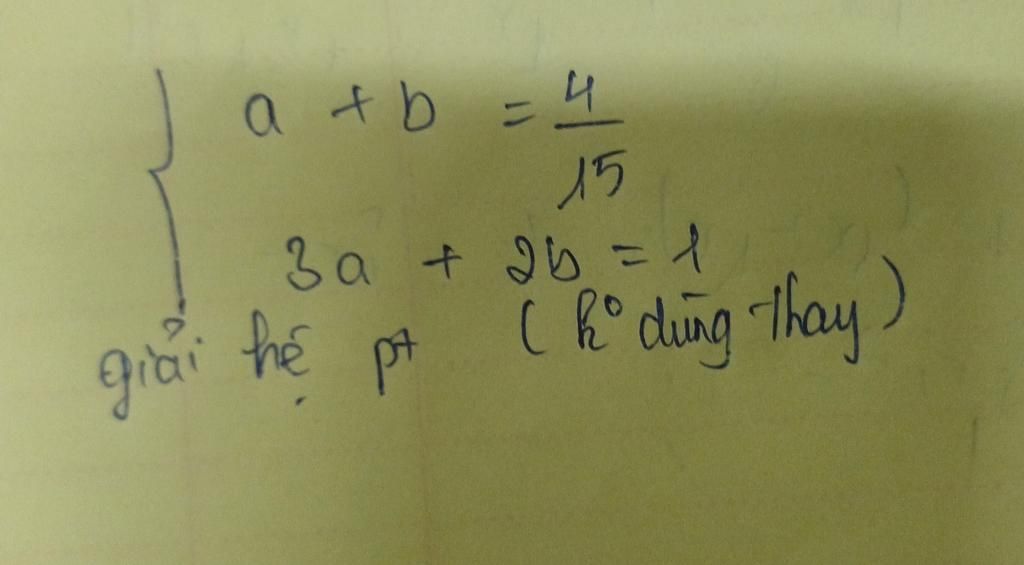 a + b = 4/15
3a + 2b = 1
giải hệ pt (k° dùng thay)